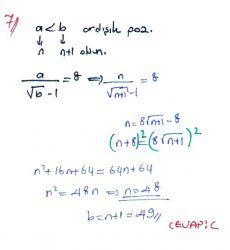 7//
a < b ardışık poz.
↓ ↓
n n+1 olsun.
a/(√b - 1) = 8 ⟹ n/(√(n+1) - 1) = 8
n = 8√(n+1) - 8
(n+8)² = (8√(n+1))²
n² + 16n + 64 = 64n + 64
n² = 48n ⟹ n = 48
b = n+1 = 49//
CEVAP: C